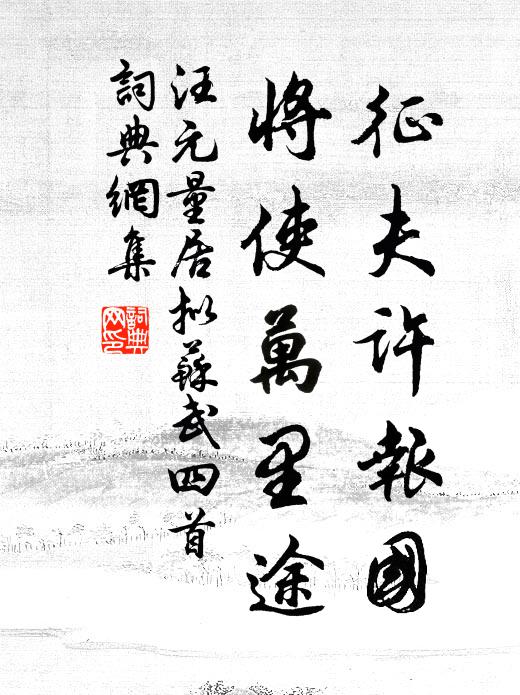 征夫許報國
將使萬里途
汪元量居拟蘇武四首
詞典網集
詞典网印